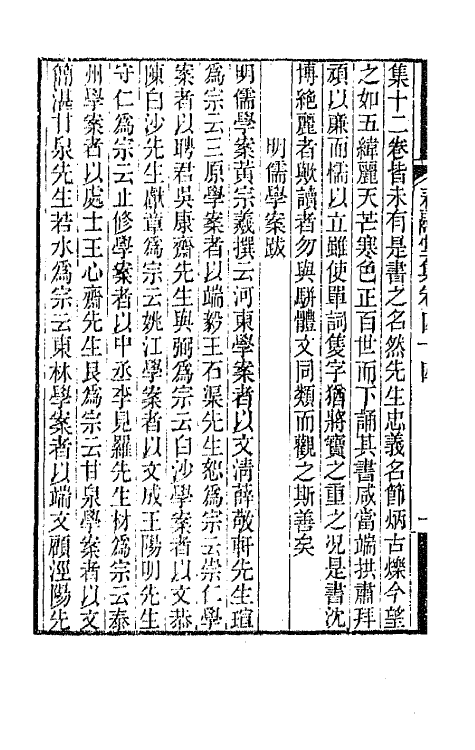 集十二卷皆未有是書之名然先生忠義名節炳古爍今望
之如五緯麗天芒寒色正百世而下誦其書咸當端拱肅拜
頑以廉而懦以立雖使單詞隻字猶將寶之重之況是書沈
博絕麗者歟讀者勿與駢體文同類而觀之斯善矣
明儒學案跋
明儒學案黃宗羲撰云河東學案者以文清薛敬軒先生瑄
爲宗云三原學案者以端毅王石渠先生恕爲宗云崇仁學
案者以聘君吳康齋先生與弼爲宗云白沙學案者以文恭
陳白沙先生獻章爲宗云姚江學案者以文成王陽明先生
守仁爲宗云止修學案者以中丞李見羅先生材爲宗云泰
州學案者以處士王心齋先生艮爲宗云甘泉學案者以文
簡湛甘泉先生若水爲宗云東林學案者以端文顧涇陽先
春融堂集卷四十四